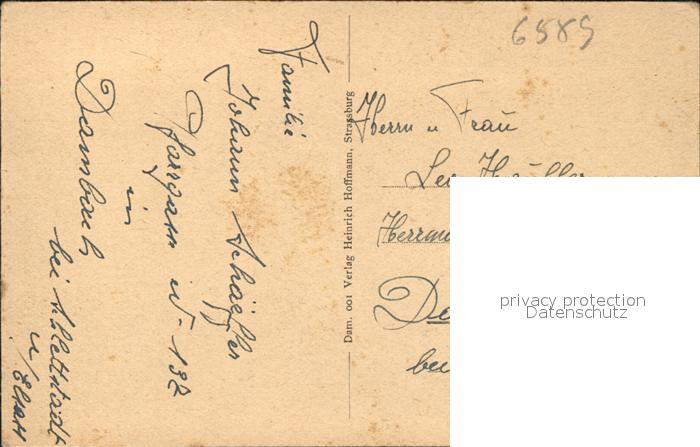 6589
Familie
Johann Schäffer
N- 132
in
Dambach
bei Schlettstadt
Elsass
Dam. 001 Verlag Heinrich Hoffmann, Strassburg
Herrn u Frau
privacy protection
Datenschutz